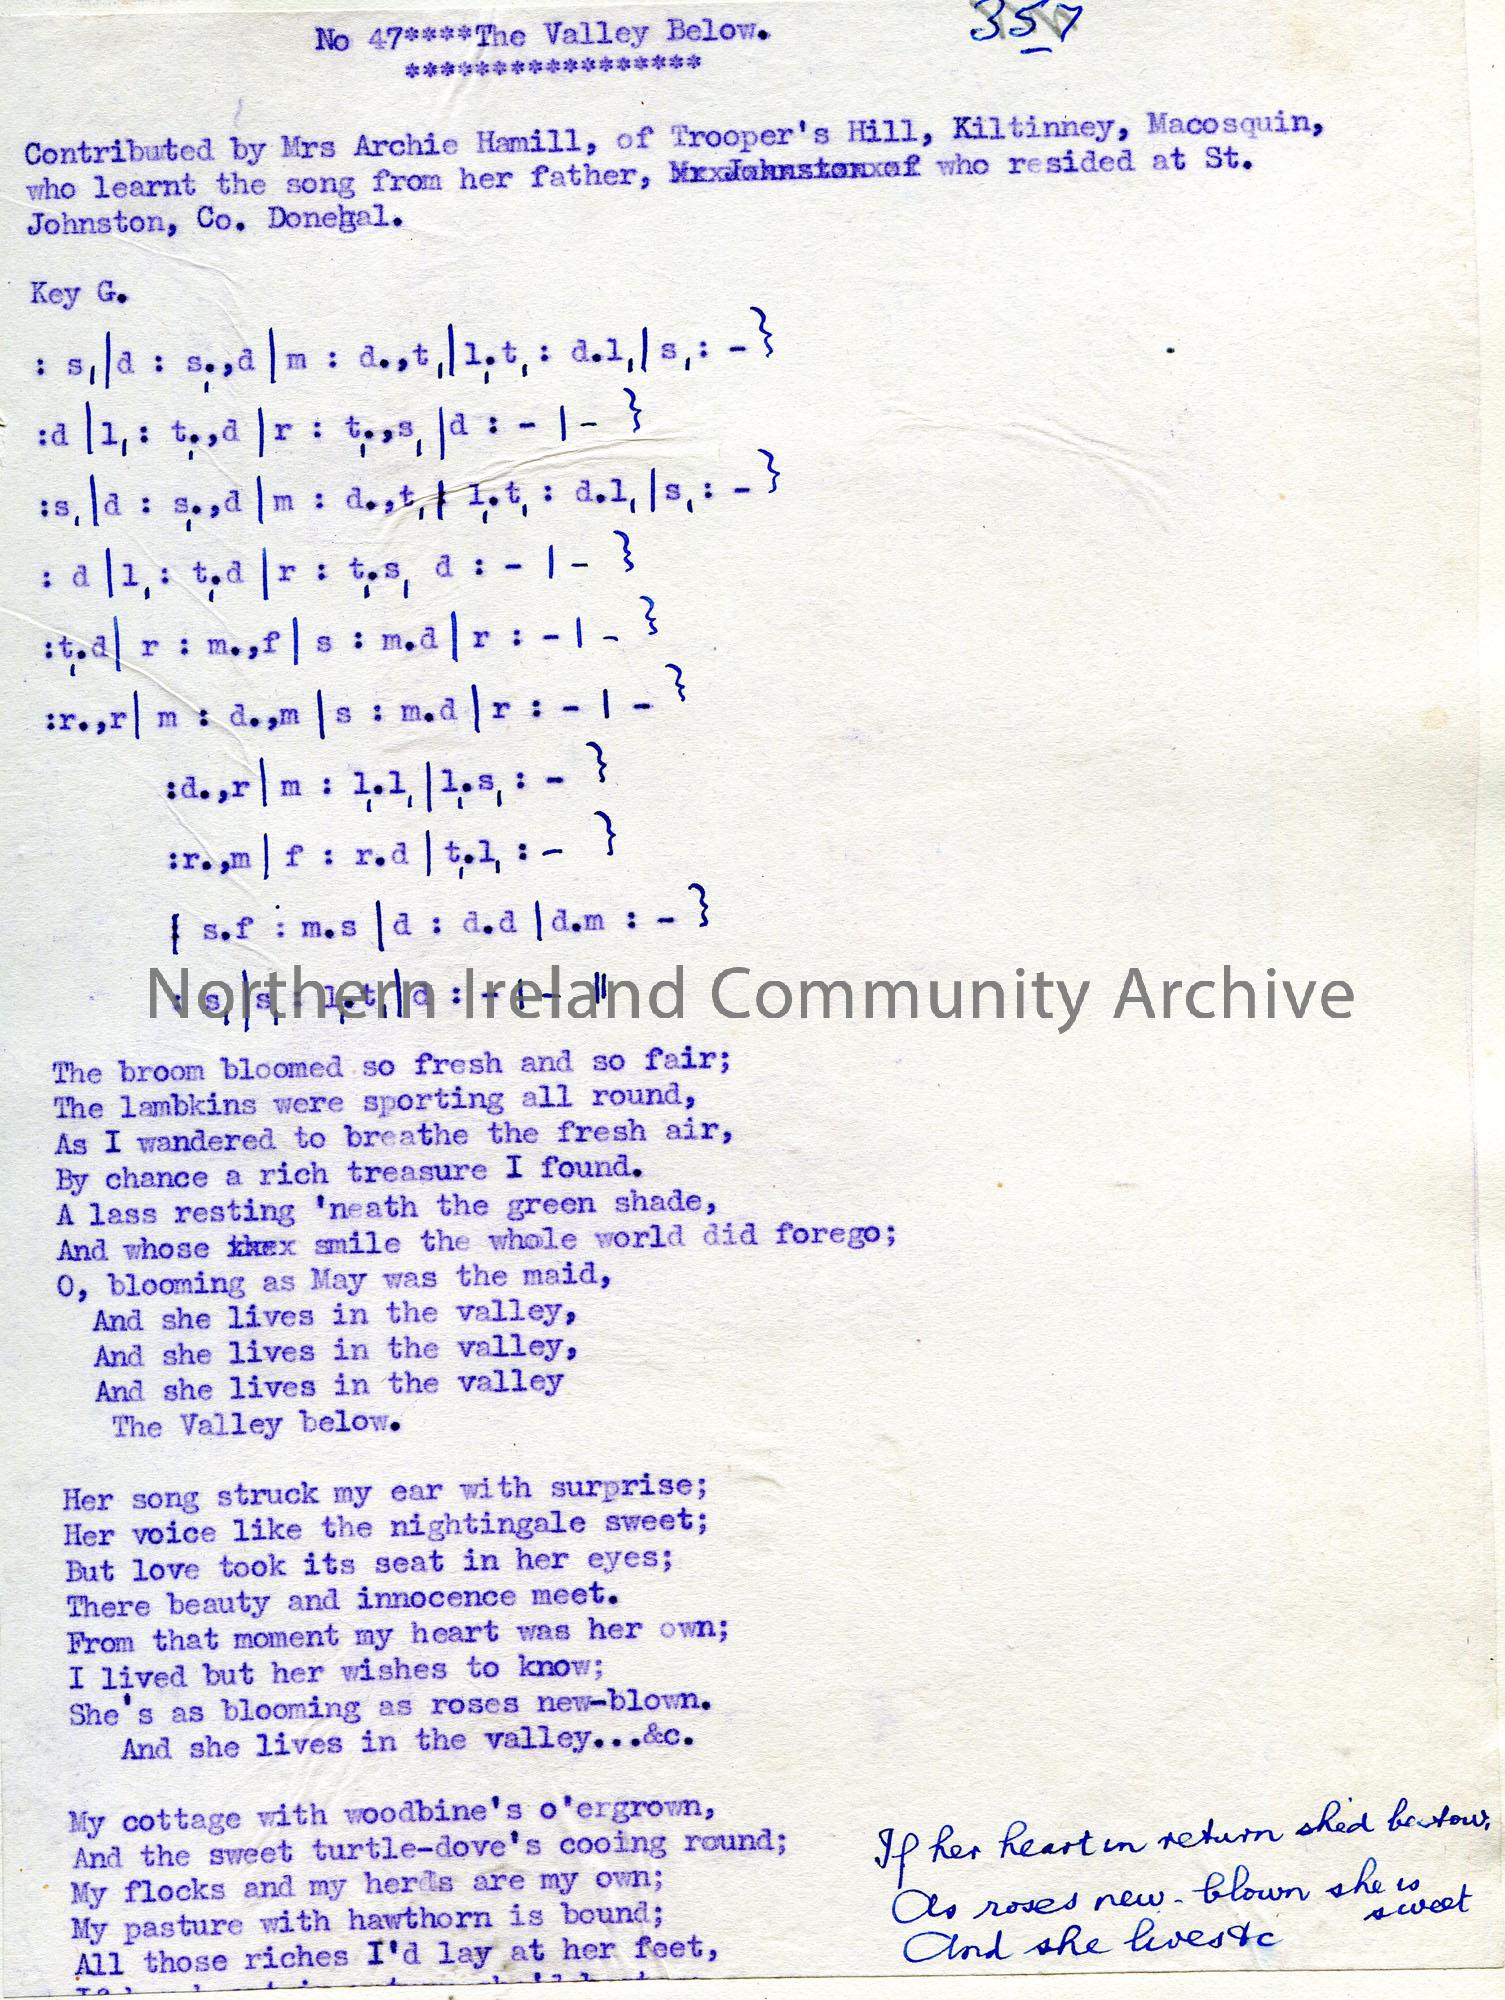 No 47****The Valley Below.
357
*****************
Contributed by Mrs Archie Hamill, of Trooper's Hill, Kiltinney, Macosquin,
who learnt the song from her father, Mr Johnston of who resided at St.
Johnston, Co. Donegal.
Key G.
: s,|d : s,.,d|m : d.,t,|l,.t, : d.l,|s, : - }
:d |l, : t,.,d|r : t,.,s,|d : - | - }
:s,|d : s,.,d|m : d.,t,| l,.t, : d.l,|s, : - }
: d |l, : t,.d |r : t,.s, d : - | - }
:t,.d| r : m.,f| s : m.d |r : - | - }
:r.,r| m : d.,m |s : m.d |r : - | - }
:d.,r| m : l,.l,|l,.s, : - }
:r.,m| f : r.d |t,.l, : - }
| s.f : m.s |d : d.d |d.m : - }
: s,|s, : l,.t,|d : - | - ||
Northern Ireland Community Archive
The broom bloomed so fresh and so fair;
The lambkins were sporting all round,
As I wandered to breathe the fresh air,
By chance a rich treasure I found.
A lass resting 'neath the green shade,
And whose smile the whole world did forego;
O, blooming as May was the maid,
And she lives in the valley,
And she lives in the valley,
And she lives in the valley
The Valley below.
Her song struck my ear with surprise;
Her voice like the nightingale sweet;
But love took its seat in her eyes;
There beauty and innocence meet.
From that moment my heart was her own;
I lived but her wishes to know;
She's as blooming as roses new-blown.
And she lives in the valley...&c.
My cottage with woodbine's o'ergrown,
And the sweet turtle-dove's cooing round;
My flocks and my herds are my own;
My pasture with hawthorn is bound;
All those riches I'd lay at her feet,
If her heart in return she'd bestow,
As roses new-blown she is sweet
And she lives &c